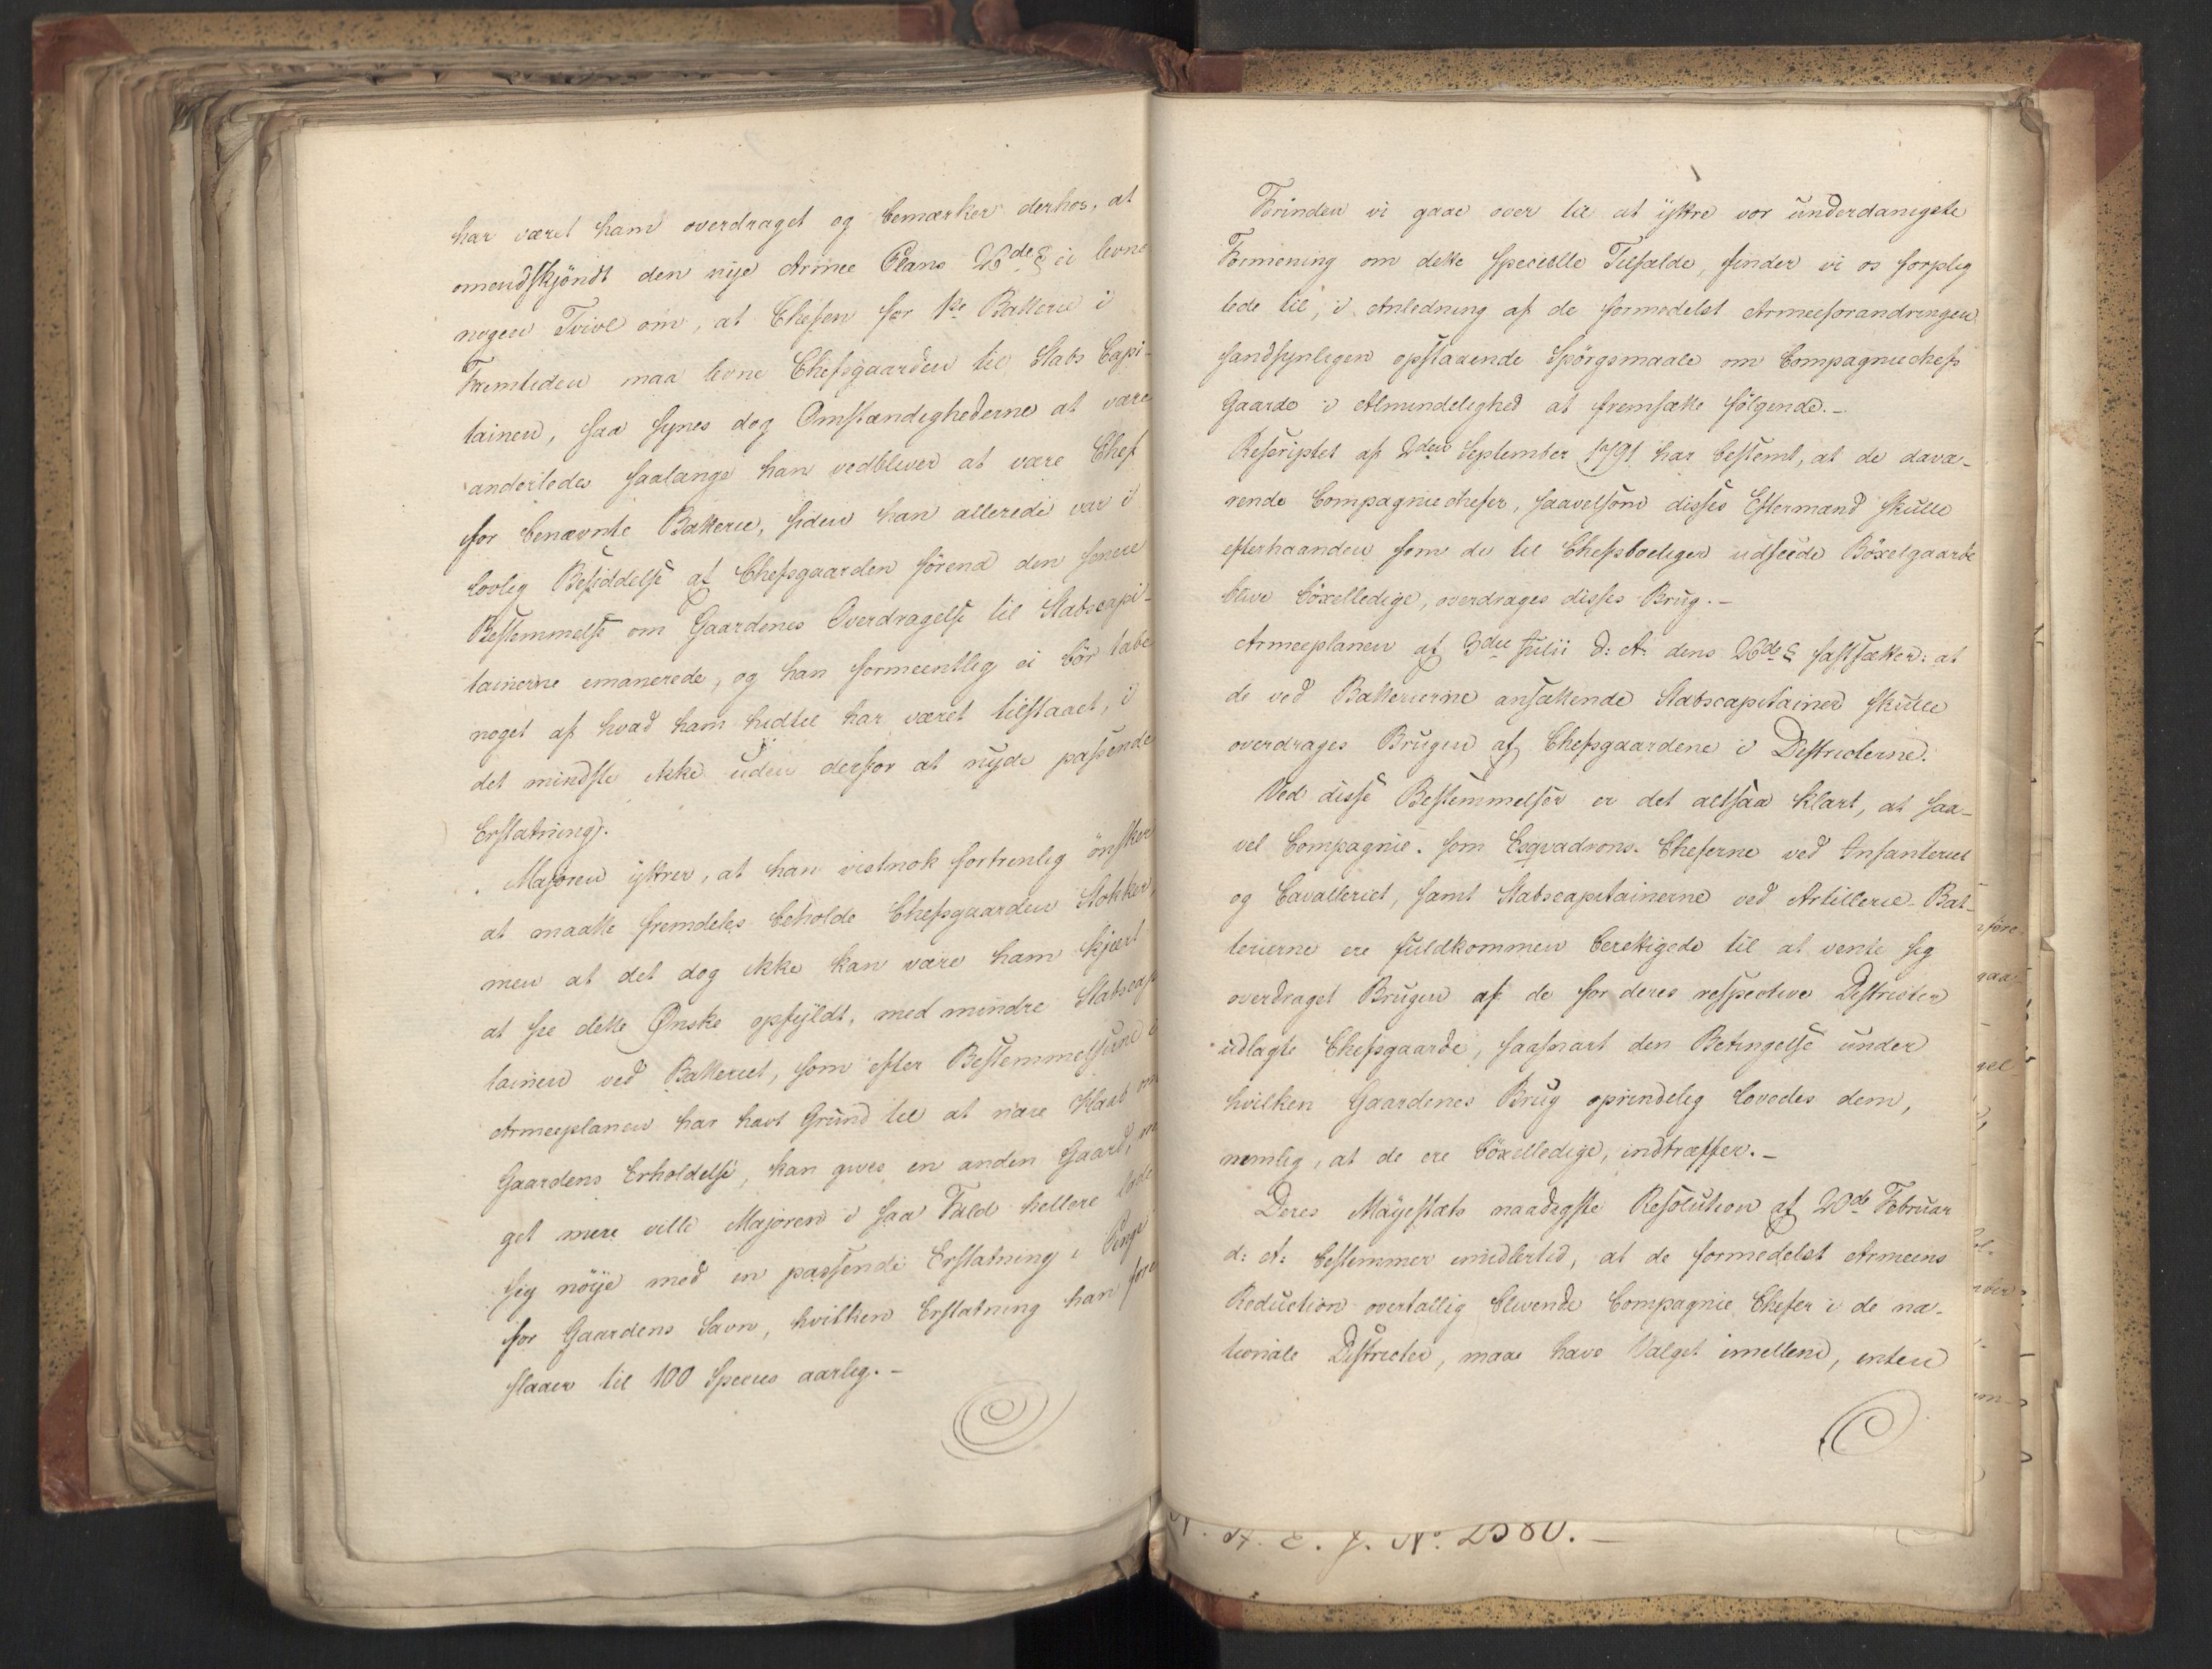 har været ham overdraget og bemærker derhos, at
omendskjöndt den nye Armee Plans 26de § ei levne
nogen Tvivl om, at Chefen for 1ste Batterie i
Fremtiden maa levne Chefsgaarden til Stabs Capi-
tainen, saa synes dog Omstændighederne at være
anderledes saalange han vedbliver at være Chef
for benævnte Batterie, siden han allerede var i
lovlig Besiddelse af Chefsgaarden förend den senere
Bestemmelse om Gaardenes Overdragelse til Stabscapi-
tainerne emanerede, og han formeentlig ei bör tabe
noget af hvad ham hidtil har været tilstaaet, i
det mindste ikke uden derfor at nyde passende
Erstatning.
Majoren yttrer, at han vistnok fortrinlig önsker
at maatte fremdeles beholde Chefsgaarden Stokker,
men at det dog ikke kan være ham kjært
at see dette Ønske opfyldt, med mindre Stabscapi
tainen ved Batteriet, som efter Bestemmelserne i
Armeeplanen har havt Grund til at nære Haab om
Gaardens Erholdelse, kan gives en anden Gaard,
get mere ville Majoren i saa Fald hellere lade
sig nöye med en passende Erstatning i Penge
for Gaardens Savn, hvilken Erstatning han fore
slaaer til 100 Species aarlig. -
Forinden vi gaae over til at yttre vor underdanigste
Formening om dette specielle Tilfælde, finder vi os forplig
tede til, i Anledning af de formedelst Armeeforandringen
sandsynligen opstaaende Spörgsmaale om Compagniechefs
Gaarde i Almindelighed at fremsætte fölgende. -
Rescriptet af 2den September 1791 har bestemt, at de dava-
rende Compagniechefer, saavelsom disses Eftermænd skulle
efterhaanden som de til Chefsboeliger udseede Böxelgaarde
blive böxelledige, overdrages disses Brug. -
Armeeplanen af 3die Julii d: A: dens 26de § fastsætter: at
de ved Batterierne ansættende Stabscapitainer skulle
overdrages Brugen af Chefsgaardene i Districterne.
Ved disse Bestemmelser er det altsaa klart, at saa-
vel Compagnie- som Esqvadrons- Cheferne ved Infanteriet
og Cavalleriet, samt Stabscapitainerne ved Artillerie-Bat-
terierne ere fuldkommen berettigede til at vente sig
overdraget Brugen af de for deres respective Districter
udlagte Chefsgaarde, saasnart den Betingelse under
hvilken Gaardenes Brug oprindelig lovedes dem,
nemlig, at de ere böxelledige, indtræffer. -
Deres Mayestæts naadigste Resolution af 20de Februar
d: A: bestemmer imidlertid, at de formedelst Armeens
Reduction overtallig blivende Compagnie Chefer i de na-
tionale Districter, maae have Valget imellem, enten
A. E. J. No. 2580. -